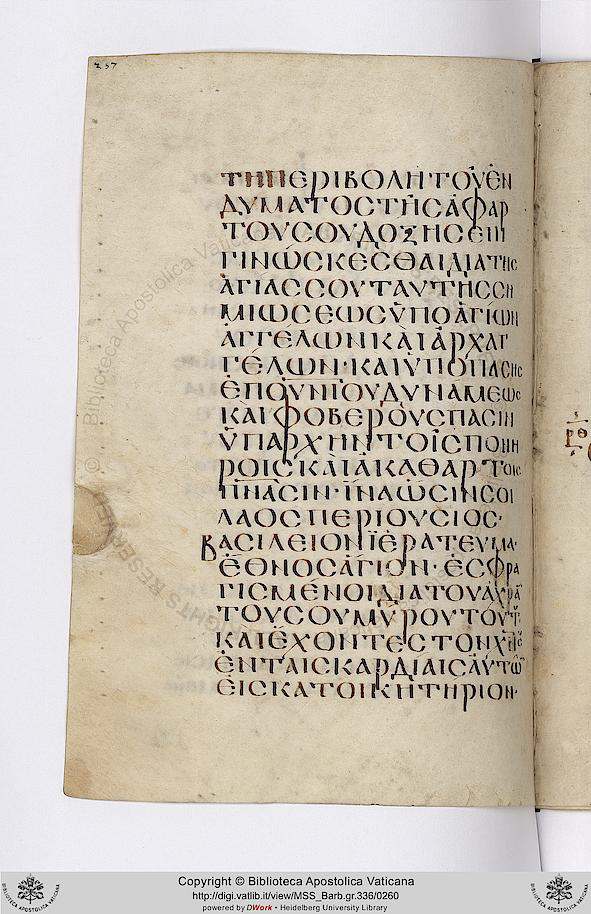 257
ΤΗΠΕΡΙΒΟΛΗΤΟΥΕΝ
ΔΥΜΑΤΟΣΤΗΣΑΦΑΡ
ΤΟΥΣΟΥΔΟΞΗΣΕΠΙ
ΓΙΝΩΣΚΕΣΘΑΙΔΙΑΤΗΣ
ΑΓΙΑΣΣΟΥΤΑΥΤΗΣΣΗ
ΜΙΩΣΕΩΣΫΠΟΑΓΙΩΝ
ΑΓΓΕΛΩΝΚΑΙΑΡΧΑΓ
ΓΕΛΩΝ·ΚΑΙΥΠΟΠΑΣΗΣ
ΕΠΟΥΝΙΟΥΔΥΝΑΜΕΩΣ
ΚΑΙΦΟΒΕΡΟΥΣΠΑΣΙΝ
ΫΠΑΡΧΗΝΤΟΙΣΠΟΝΗ
ΡΟΙΣΚΑΙΑΚΑΘΑΡΤΟΙΣ
ΠΝΑΣΙΝ·ΪΝΑΩΣΙΝΣΟΙ
ΛΑΟΣΠΕΡΙΟΥΣΙΟΣ·
ΒΑΣΙΛΕΙΟΝΪΕΡΑΤΕΥΜΑ·
ΕΘΝΟΣΑΓΙΟΝ·ΕΣΦΡΑ
ΓΙΣΜΕΝΟΙΔΙΑΤΟΥΑΧΡΑ
ΤΟΥΣΟΥΜΥΡΟΥΤΟΥΤ
ΚΑΙΕΧΟΝΤΕΣΤΟΝΧΝΣΟΥ
ΕΝΤΑΙΣΚΑΡΔΙΑΙΣΑΥΤΩ
ΕΙΣΚΑΤΟΙΚΗΤΗΡΙΟΝ·
ρθ
© Biblioteca Apostolica Vaticana
RIGHTS RESERVED
Copyright © Biblioteca Apostolica Vaticana
http://digi.vatlib.it/view/MSS_Barb.gr.336/0260
powered by DWork • Heidelberg University Library